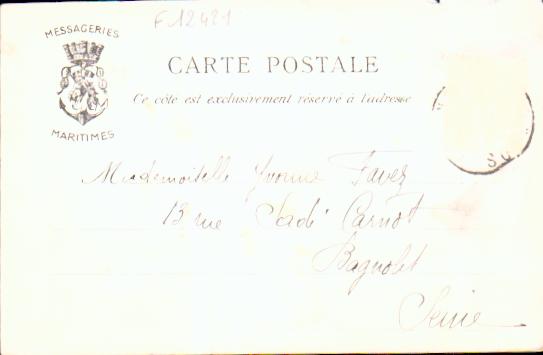 F 12421
MESSAGERIES
MARITIMES
CARTE POSTALE
Ce côte est exclusivement réservé à l'adresse
Mademoiselle Yvonne Favez
13 rue Sadi Carnot
Bagnolet
Seine